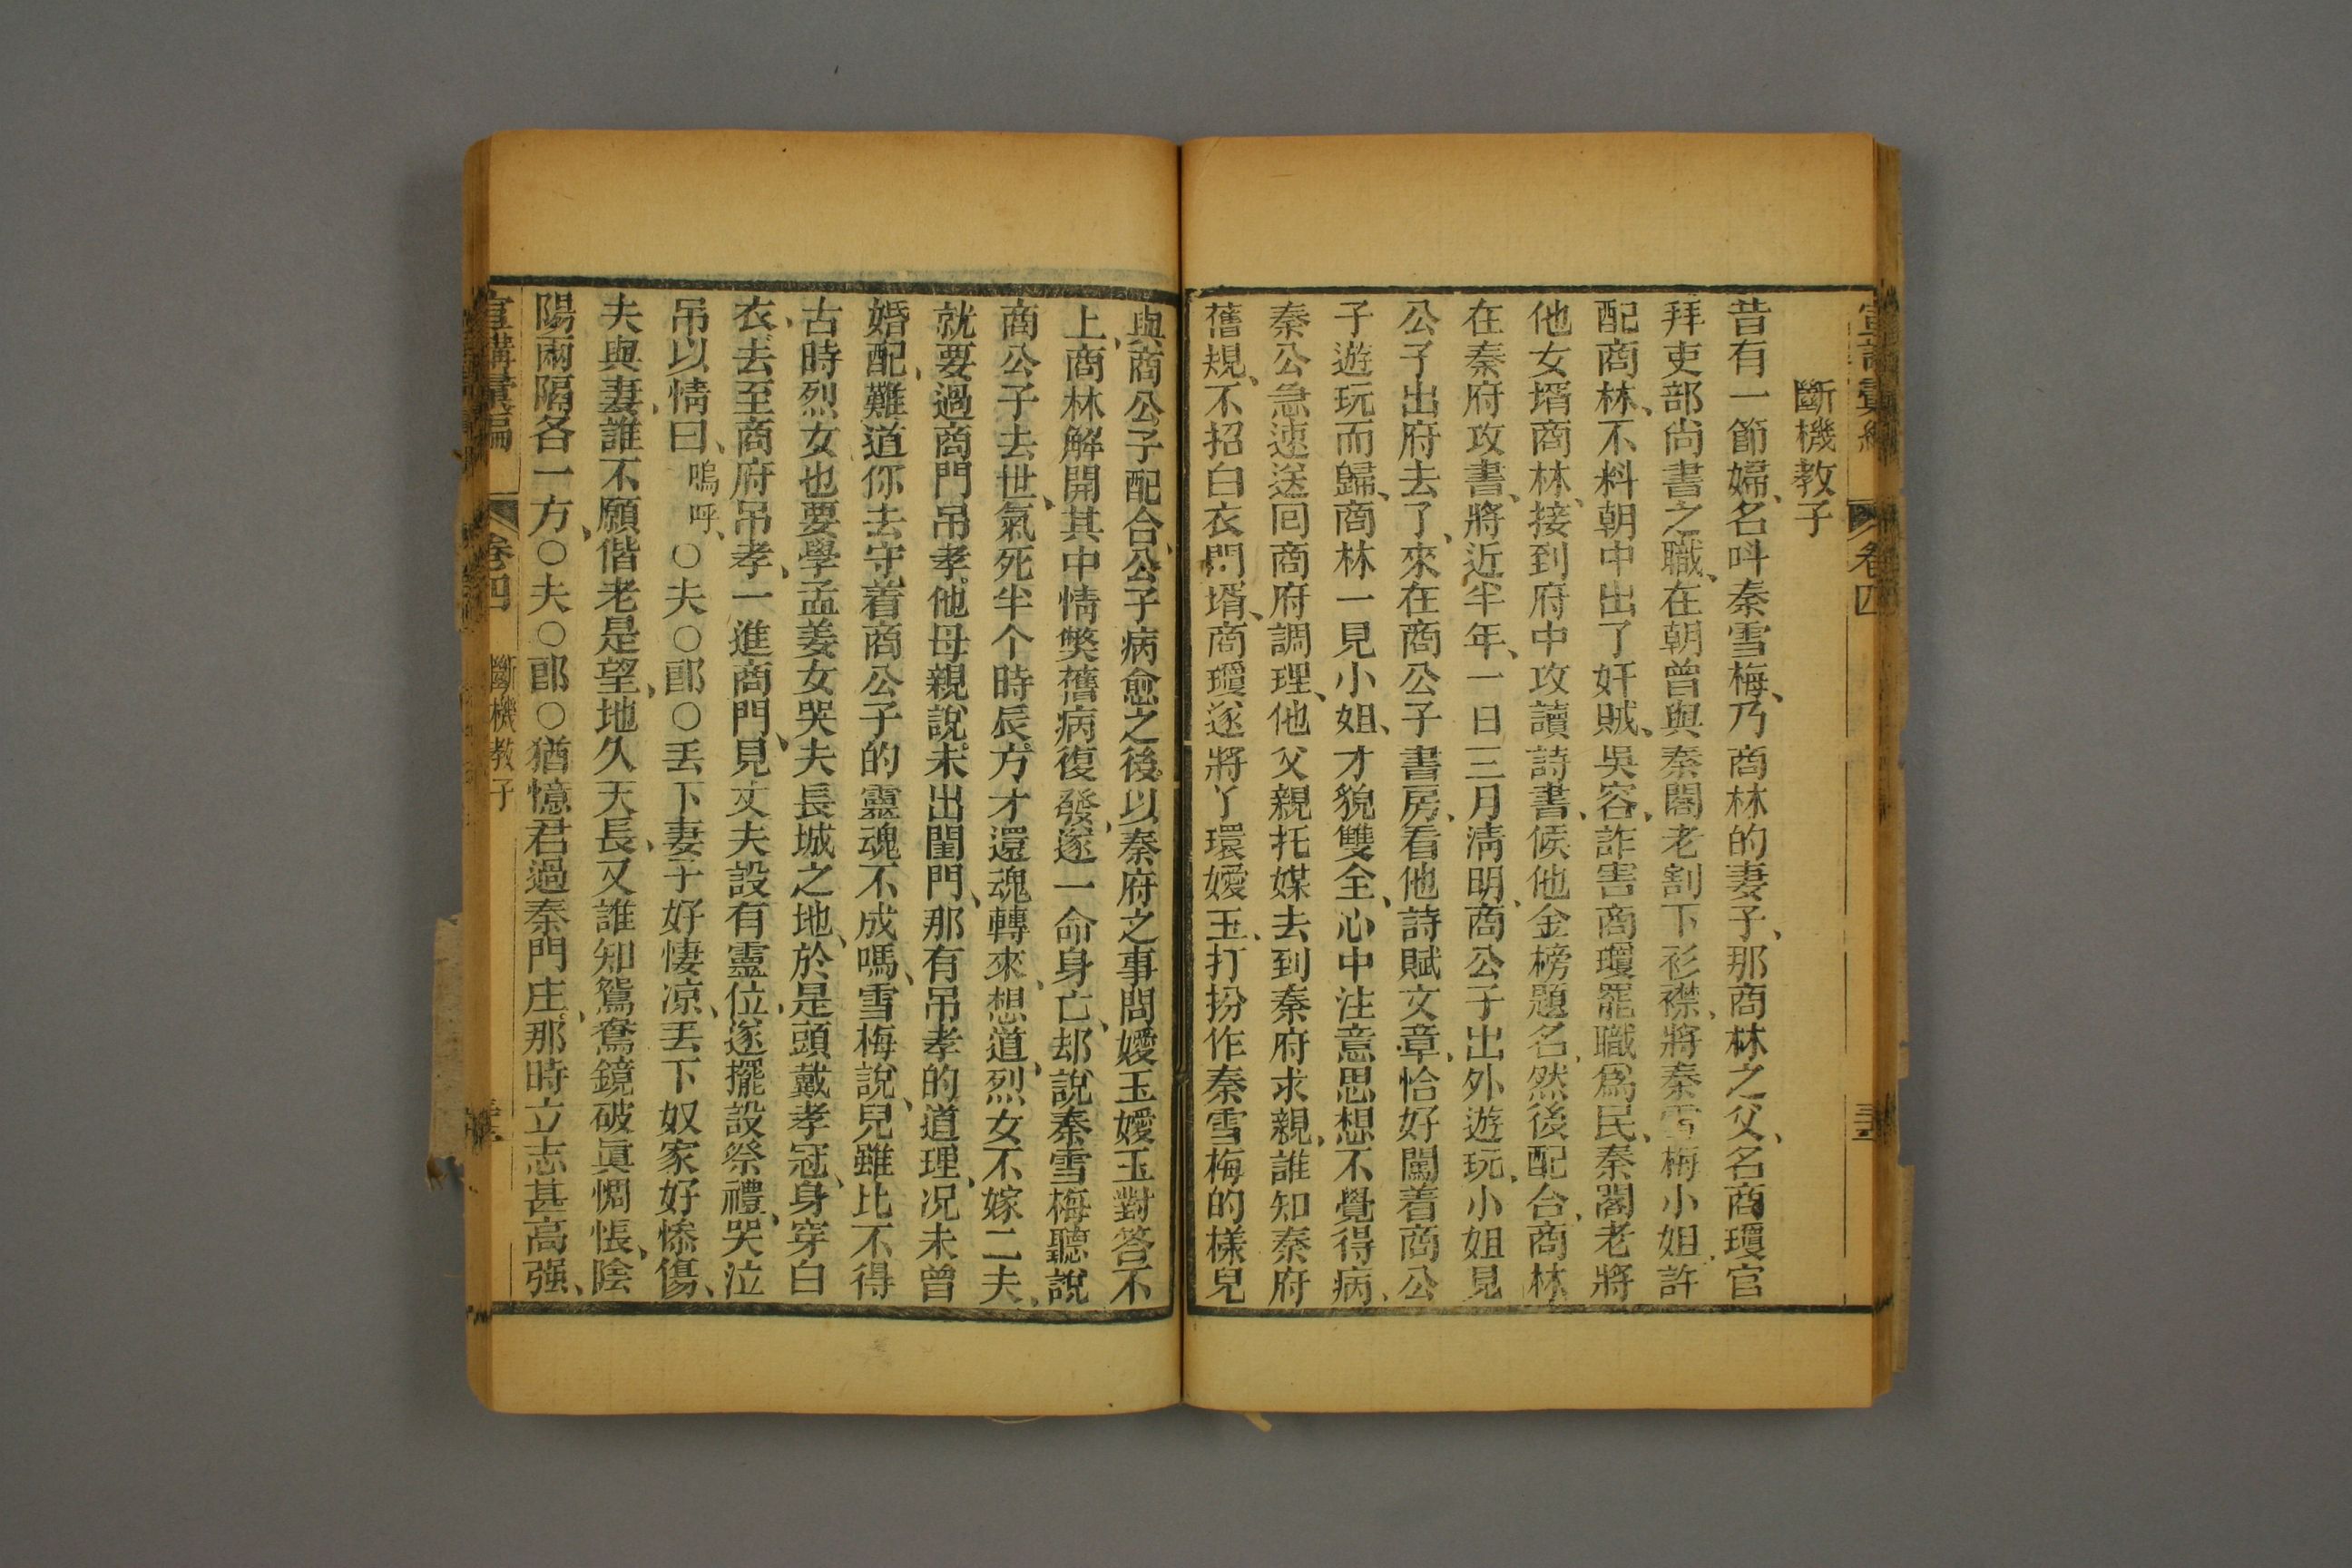 宣講彙編 卷四
斷機教子
昔有一節婦、名呌秦雪梅、乃商林的妻子、那商林之父、名商瓊官
拜吏部尚書之職、在朝曾與秦閣老割下衫襟、將秦雪梅小姐、許
配商林、不料朝中出了奸賊、吳容、詐害商瓊罷職為民、秦閣老將
他女壻商林、接到府中攻讀詩書、候他金榜題名、然後配合、商林
在秦府攻書、將近半年、一日三月淸明、商公子出外遊玩、小姐見
公子出府去了、來在商公子書房、看他詩賦文章、恰好闖着商公
子遊玩而歸、商林一見小姐、才貌雙全、心中注意思想不覺得病、
秦公急速送回商府調理、他父親托媒去到秦府求親、誰知秦府
舊規、不招白衣門壻、商瓊遂將丫環嬡玉、打扮作秦雪梅的樣兒
與商公子配合、公子病愈之後、以秦府之事問嬡玉嬡玉對答不
上、商林解開其中情獘舊病復發、遂一命身亡、却說秦雪梅聽說
商公子去世、氣死半个時辰、方才還魂轉來、想道、烈女不嫁二夫、
就要過商門吊孝、他母親說、未出閨門、那有吊孝的道理、况未曾
婚配、難道你去守着商公子的靈魂不成嗎、雪梅說、兒雖比不得
古時烈女也要學孟姜女哭夫長城之地、於是頭戴孝冠、身穿白
衣、去至商府吊孝、一進商門、見丈夫設有靈位、遂擺設祭禮、哭泣
吊以情曰、嗚呼、○夫○郎○丢下妻子好悽凉、丢下奴家好慘傷、
夫與妻、誰不願偕老是望、地久天長、又誰知鴛鴦鏡破眞惆悵、陰
陽兩隔各一方、○夫○郎○猶憶君過秦門庄、那時立志甚高强、
宣講彙編 卷四 斷機教子